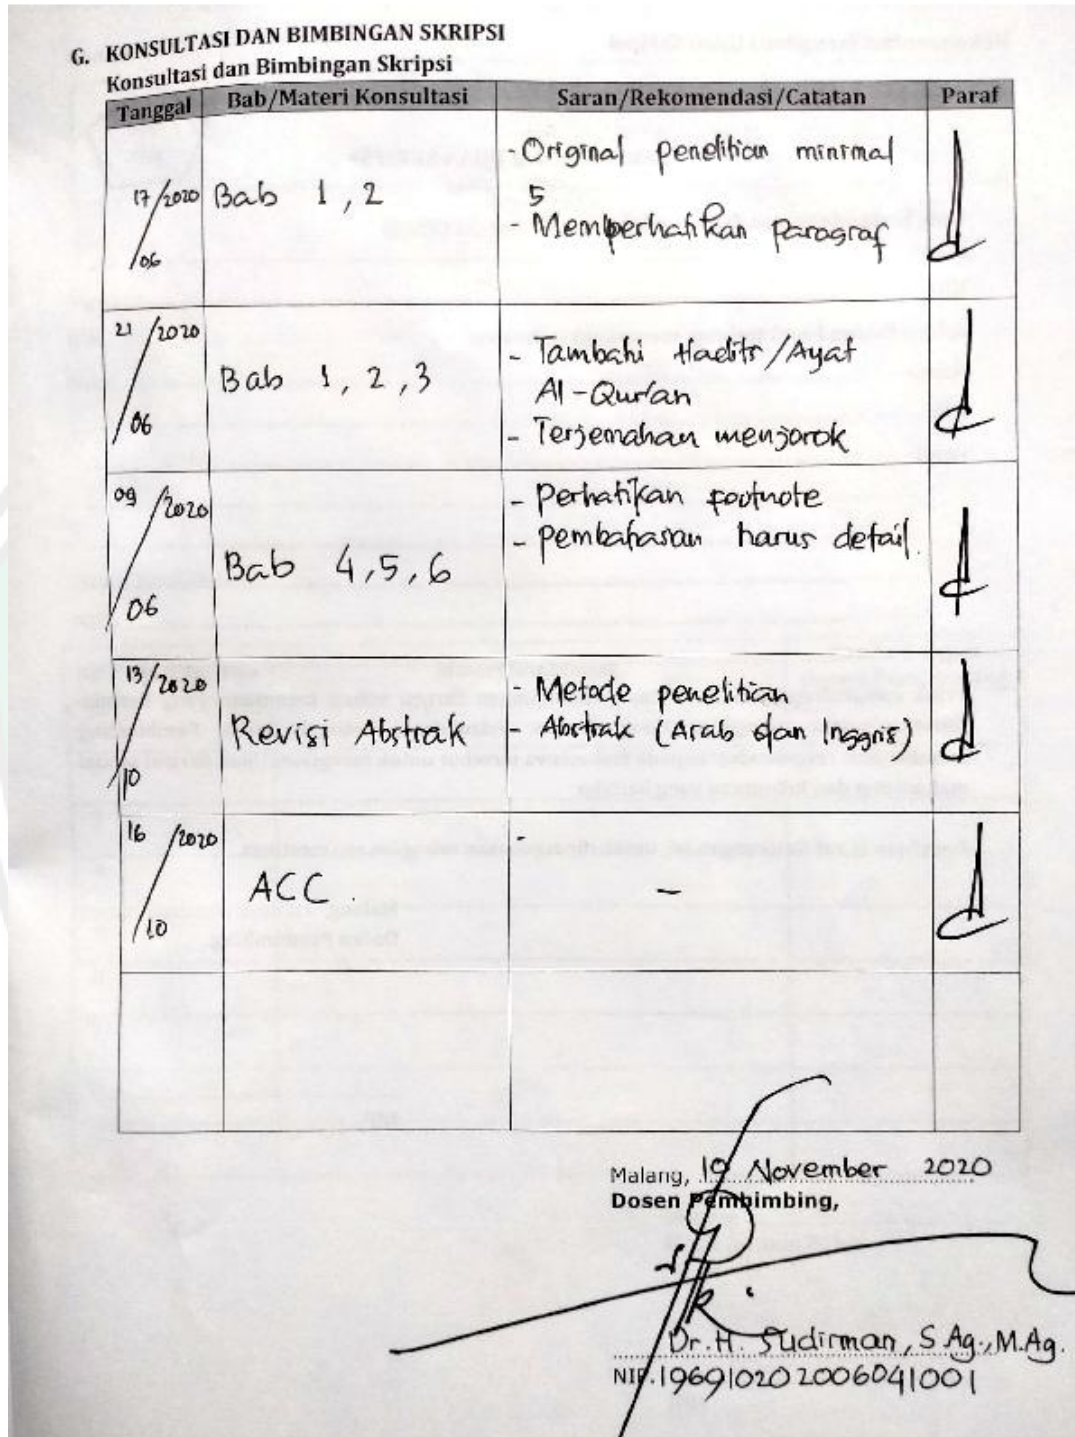 G. KONSULTASI DAN BIMBINGAN SKRIPSI
Konsultasi dan Bimbingan Skripsi
Tanggal Bab/Materi Konsultasi Saran/Rekomendasi/Catatan Paraf
17/2020/06 Bab 1, 2
- Original penelitian minimal
5
- Memperhatikan paragraf
21/2020/06 Bab 1, 2, 3
- Tambahi Hadits/Ayat
Al-Qur'an
- Terjemahan menjorok
09/2020/06 Bab 4, 5, 6
- Perhatikan footnote
- pembahasan harus detail.
13/2020/10 Revisi Abstrak
- Metode penelitian
- Abstrak (Arab dan Inggris)
16/2020/10 ACC. -
Malang, 19 November 2020
Dosen Pembimbing,
Dr. H. Sudirman, S.Ag., M.Ag.
NIP.196910202006041001